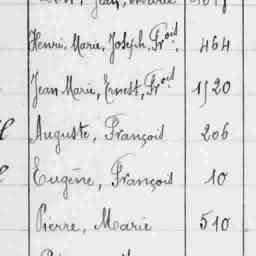 Henri, Marie, Joseph, Frçois. 464
Jean Marie, Ernest, Frçois 1520
Auguste, François 206
Eugène, François 10
Pierre, Marie 510